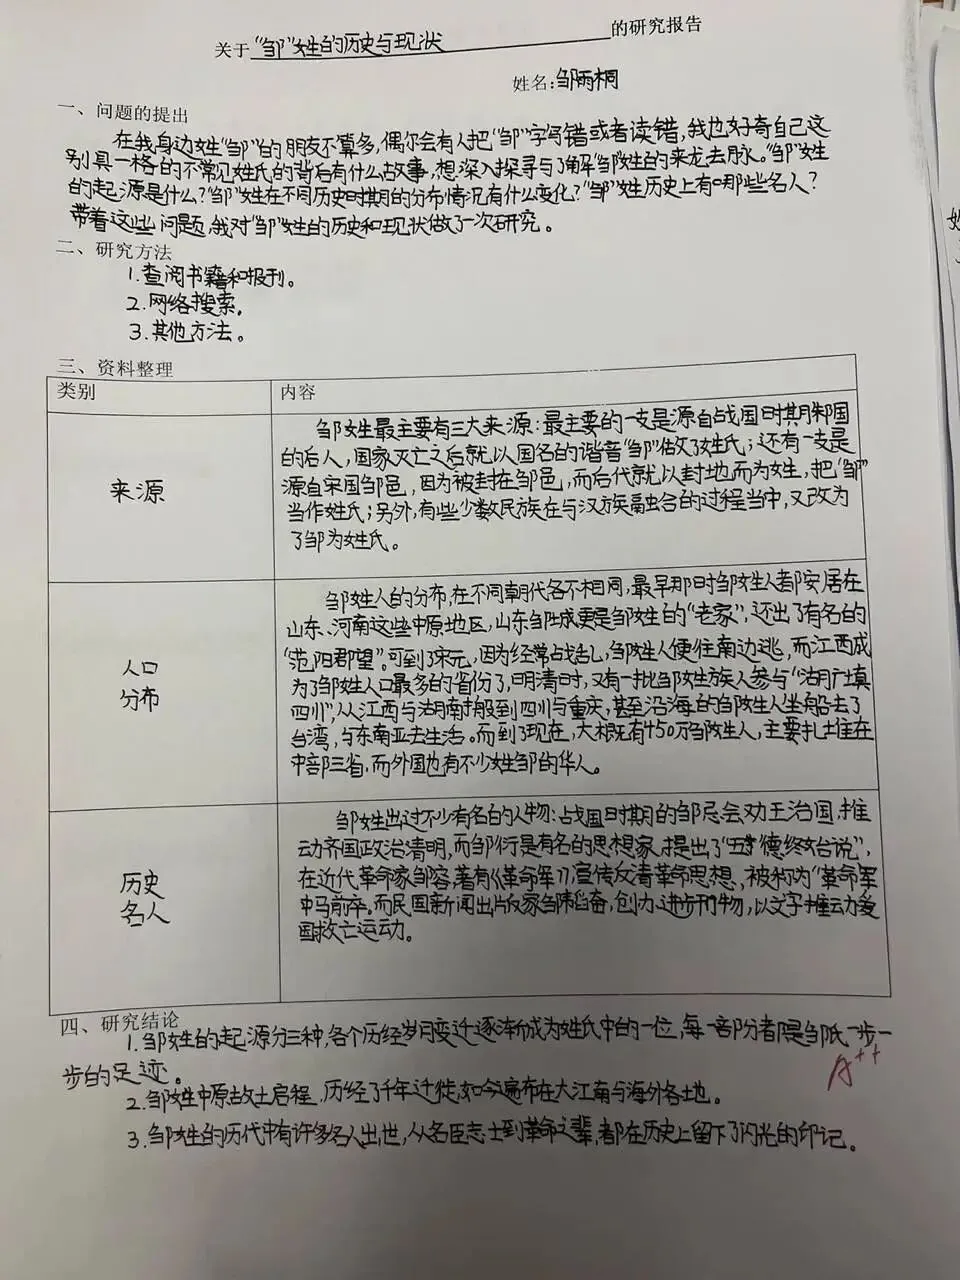 关于“邹”姓的历史与现状的研究报告
姓名:邹雨桐
一、问题的提出
在我身边姓“邹”的朋友不算多,偶尔会有人把“邹”字写错或者读错,我也好奇自己这
别具一格的不常见姓氏的背后有什么故事,想深入探寻与了解“邹”姓的来龙去脉。“邹”姓
的起源是什么?“邹”姓在不同历史时期的分布情况有什么变化?“邹”姓历史上有哪些名人?
带着这些问题,我对“邹”姓的历史和现状做了一次研究。
二、研究方法
1.查阅书籍和报刊。
2.网络搜索。
3.其他方法。
三、资料整理
类别 内容
来源
邹姓最主要有三大来源:最主要的一支是源自战国时期邾国
的后人,国家灭亡之后就以国名的谐音“邹”做了姓氏;还有一支是
源自宋国邹邑,因为被封在邹邑,而后代就以封地而为姓,把“邹”
当作姓氏;另外,有些少数民族在与汉族融合的过程当中,又改为
了邹为姓氏。
人口
分布
邹姓人的分布,在不同朝代各不相同,最早那时邹姓人都安居在
山东、河南这些中原地区,山东邹城更是邹姓的“老家”,还出了有名的
“范阳郡望”。可到了宋元,因为经常战乱,邹姓人便往南边逃,而江西成
为了邹姓人口最多的省份了,明清时,又有一批邹姓族人参与“湖广填
四川”,从江西与湖南搬到四川与重庆,甚至沿海的邹姓人坐船去了
台湾,与东南亚去生活。而到了现在,大概有450万邹姓人,主要扎土住在
中部三省,而外国也有不少姓邹的华人。
历史
名人
邹姓出过不少有名的人物:战国时期的邹忌会劝王治国,推
动齐国政治清明,而邹衍是有名的思想家,提出了“五德终始说”,
在近代革命家邹容,著有《革命军》,宣传反清革命思想,被称为“革命军
中马前卒。而民国新闻出版家邹韬奋,创办进步刊物,以文字推动爱
国救亡运动。
四、研究结论
1.邹姓的起源分三种,各个历经岁月变迁逐渐而成为姓氏中的一位,每一部分都是邹氏一步一
步的足迹。
A++
2.邹姓中原故土启程,历经了千年迁徙,如今遍布在大江南与海外各地。
3.邹姓的历代中有许多名人出世,从名臣志士到革命之辈,都在历史上留下了闪光的印记。